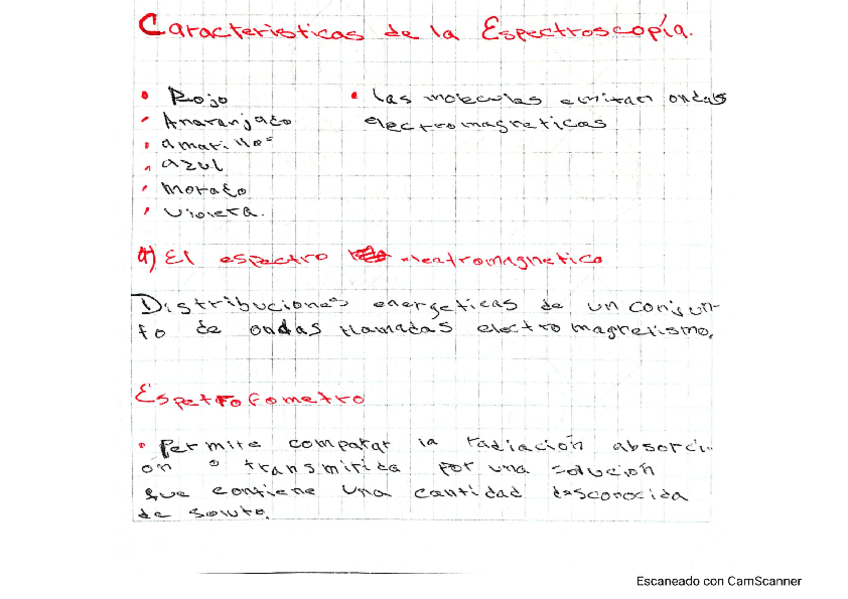 Caracteristicas de la Espectroscopía.
• Rojo
• Anaranjado
• amarillo
• azul
• Morado
• Violeta.
• Las moleculas emitan ondas
electromagneticas
4) El espectro electromagnetico
Distribuciones energeticas de un conjun-
to de ondas llamadas electromagnetismo.
Espetrofometro
• Permite comparar la radiación absorci-
ón o transmitida por una solución
que contiene una cantidad desconocida
de soluto.
Escaneado con CamScanner